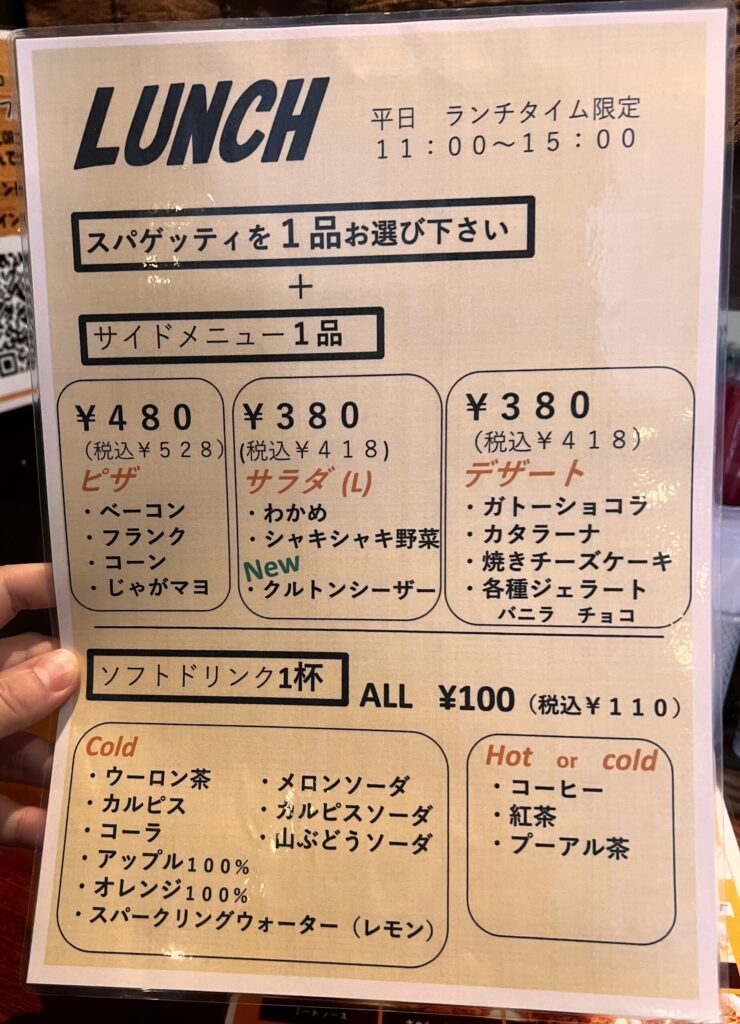 LUNCH
平日 ランチタイム限定
11：00～15：00
スパゲッティを1品お選び下さい
＋
サイドメニュー1品
￥480
（税込￥528）
ピザ
・ベーコン
・フランク
・コーン
・じゃがマヨ
￥380
(税込￥418)
サラダ (L)
・わかめ
・シャキシャキ野菜
New
・クルトンシーザー
￥380
（税込￥418）
デザート
・ガトーショコラ
・カタラーナ
・焼きチーズケーキ
・各種ジェラート
バニラ チョコ
ソフトドリンク1杯
ALL ¥100（税込￥110）
Cold
・ウーロン茶
・カルピス
・コーラ
・アップル100%
・オレンジ100%
・スパークリングウォーター（レモン）
・メロンソーダ
・カルピスソーダ
・山ぶどうソーダ
Hot or cold
・コーヒー
・紅茶
・プーアル茶
ミートソース